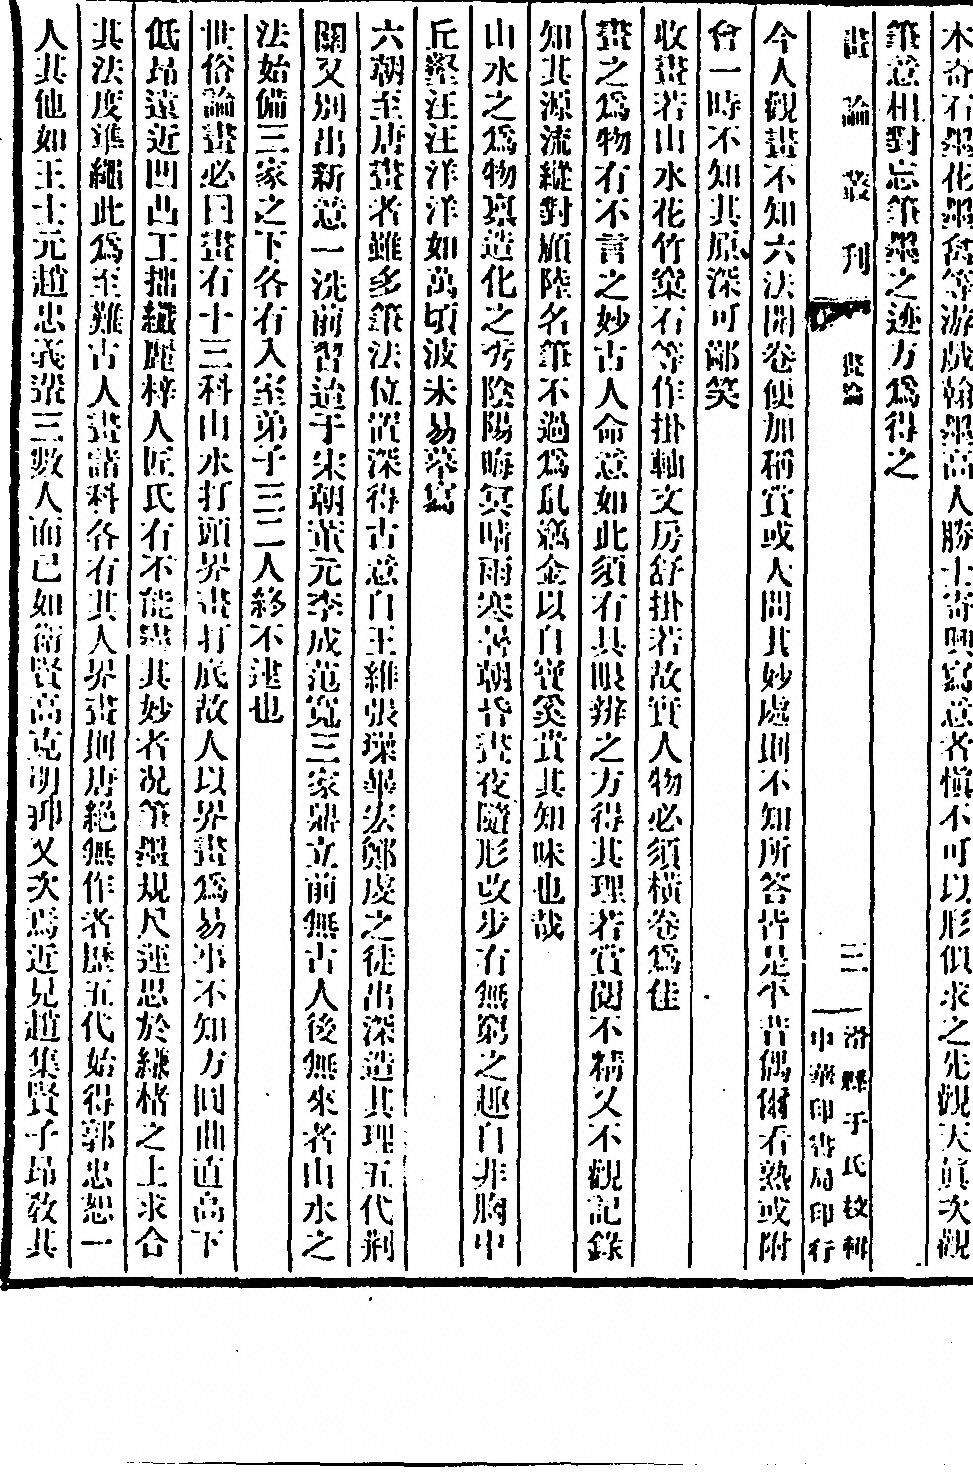 木奇石墨花墨禽等游戲翰墨高人勝士寄興寫意者愼不可以形似求之先觀天眞次觀
筆意相對忘筆墨之迹方爲得之
畫論叢刊 畫論 三 滑縣于氏校輯
中華印書局印行
今人觀畫不知六法開卷便加稱賞或人問其妙處則不知所答皆是平昔偶爾看熟或附
會一時不知其原深可鄙笑
收畫若山水花竹窠石等作掛軸文房舒掛若故實人物必須橫卷爲佳
畫之爲物有不言之妙古人命意如此須有具眼辨之方得其理若賞閱不精又不觀記錄
知其源流縱對顧陸名筆不過爲鼠遯金以自寶奚貴其知味也哉
山水之爲物稟造化之秀陰陽晦冥晴雨寒暑朝昏晝夜隨形改步有無窮之趣自非胸中
丘壑汪汪洋洋如萬頃波未易摹寫
六朝至唐畫者雖多筆法位置深得古意自王維張璪畢宏鄭虔之徒出深造其理五代荆
關又別出新意一洗前習迨于宋朝董元李成范寬三家鼎立前無古人後無來者山水之
法始備三家之下各有入室弟子三二人終不迨也
世俗論畫必曰畫有十三科山水打頭界畫打底故人以界畫爲易事不知方圓曲直高下
低昂遠近凹凸工拙纖麗梓人匠氏有不能盡其妙者況筆墨規尺運思於縑楮之上求合
其法度準繩此爲至難古人畫諸科各有其人界畫則唐絕無作者歷五代始得郭忠恕一
人其他如王士元趙忠義輩三數人而已如衛賢高克明抑又次焉近見趙集賢子昂敎其